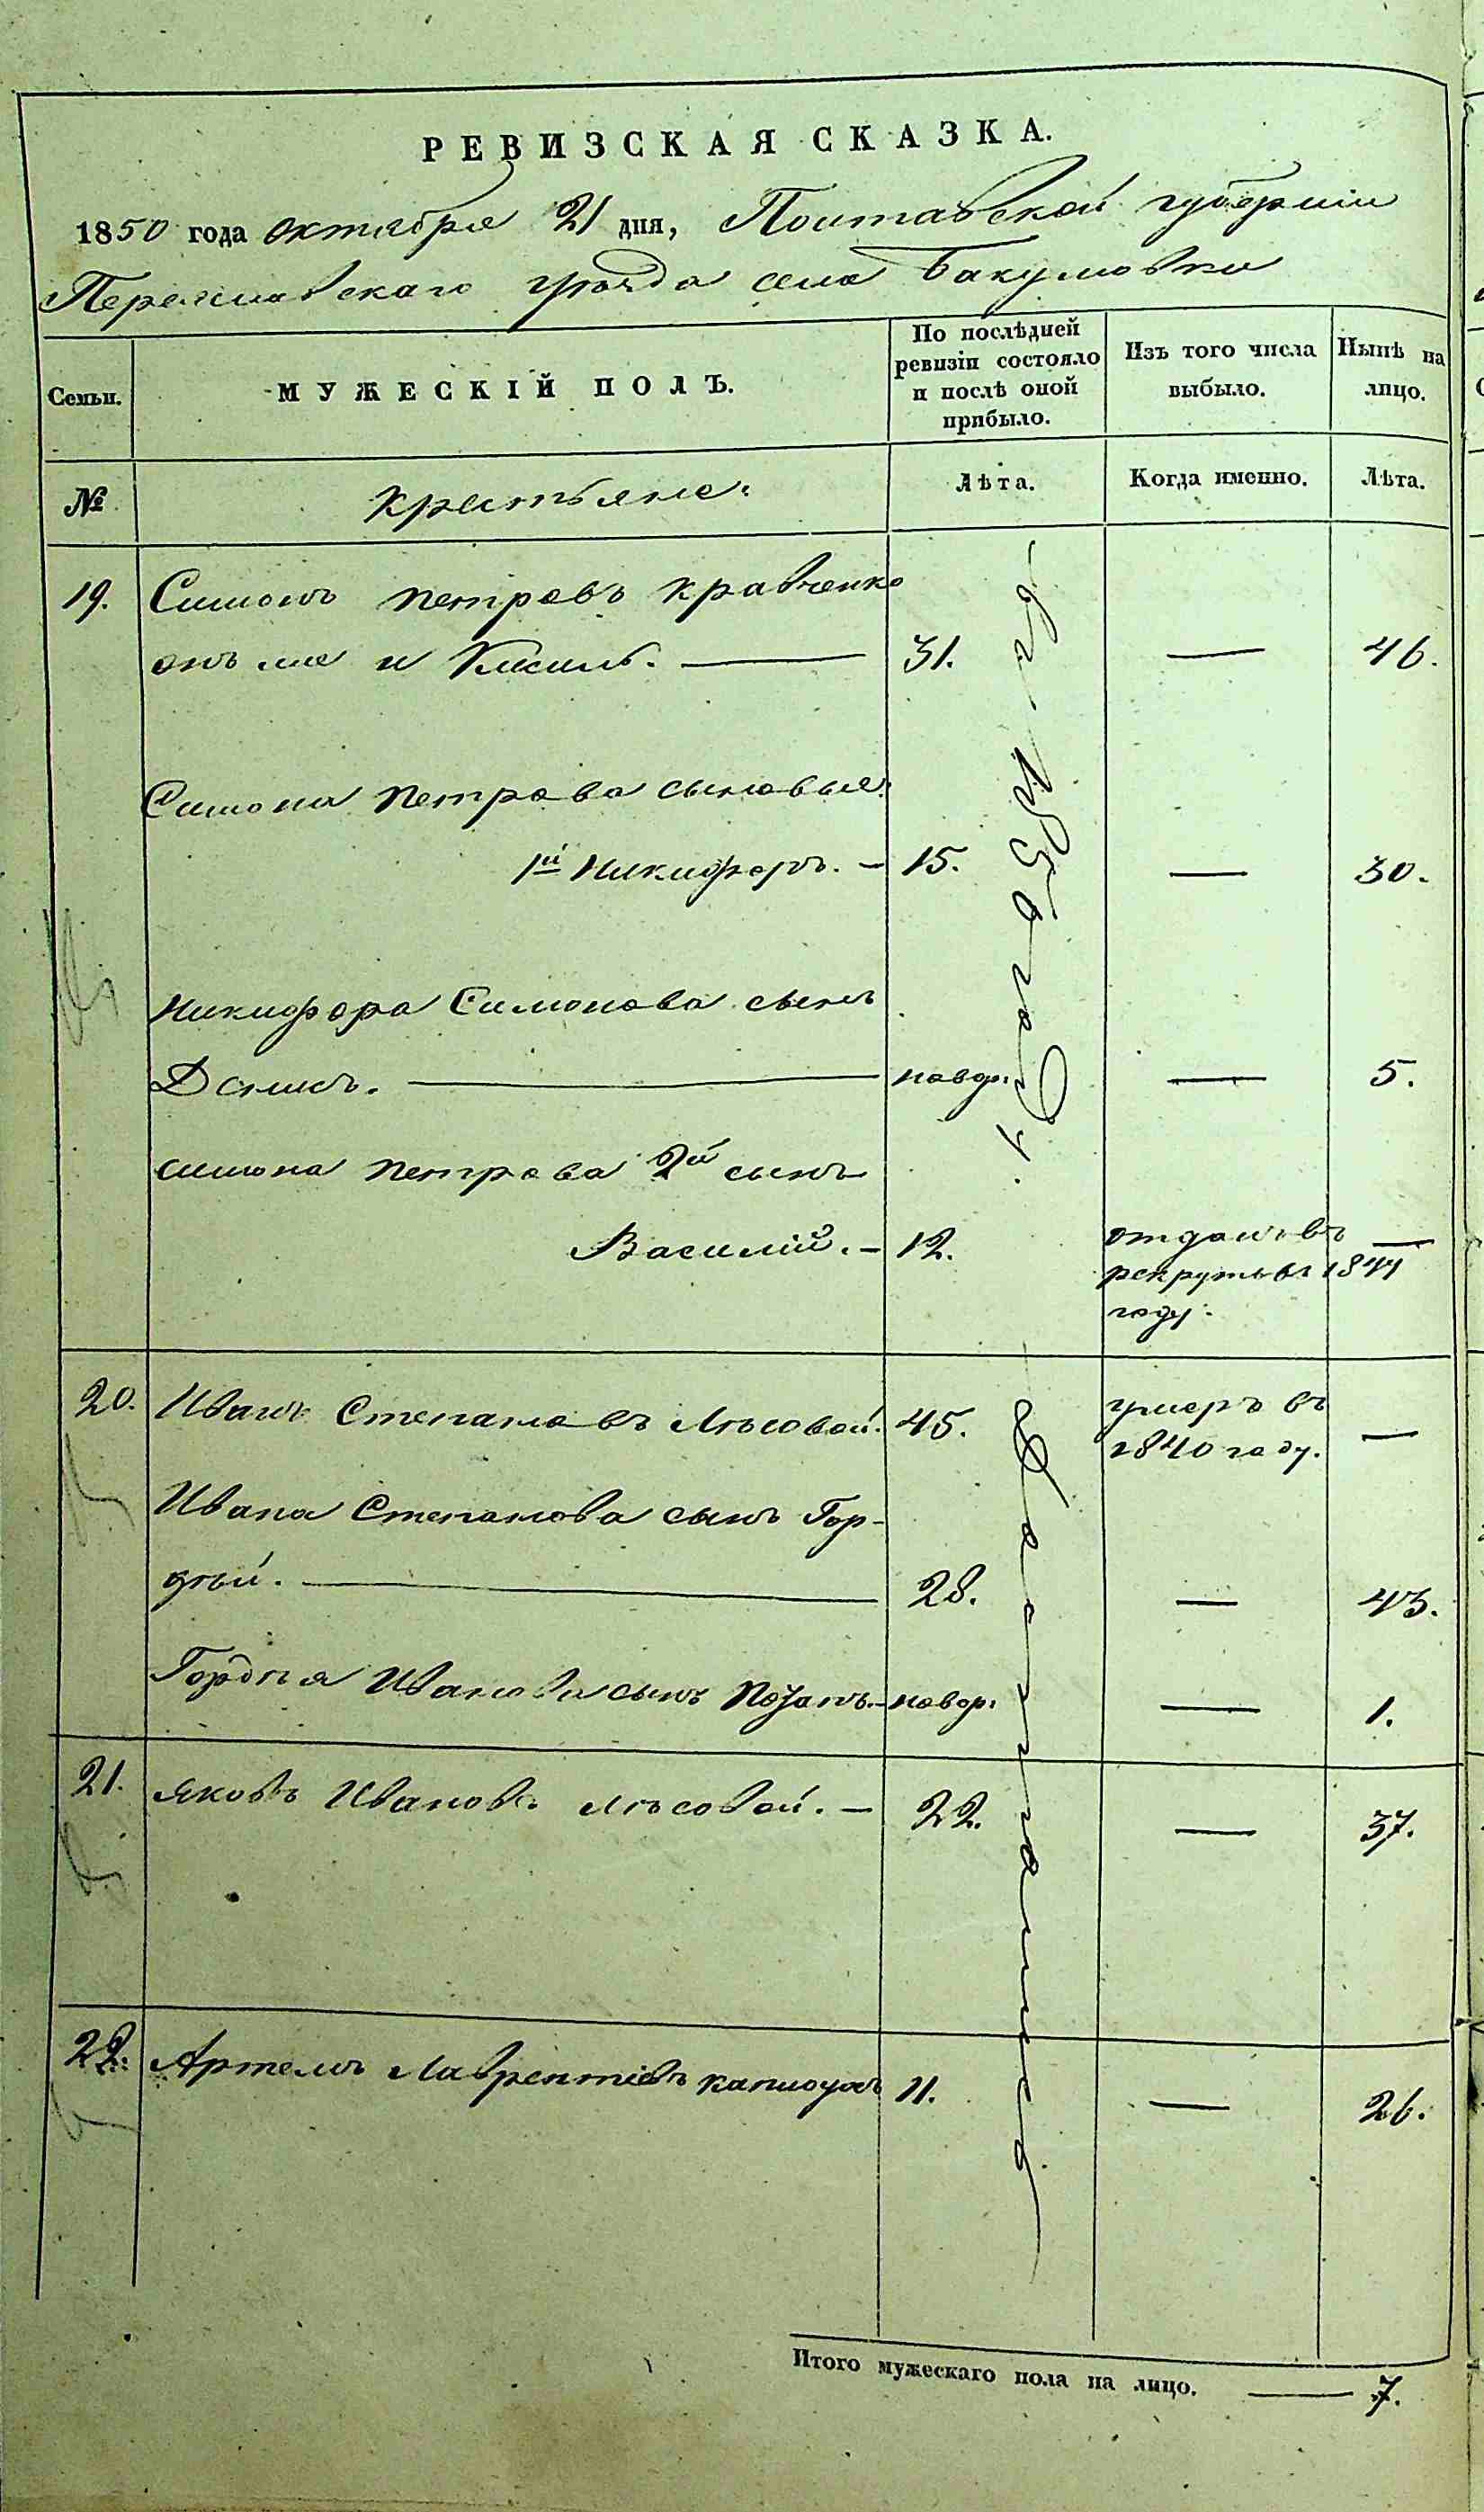 РЕВИЗСКАЯ СКАЗКА.
1850 года октября 21 дня, Полтавской губернiи
Переяславскаго уѣзда села Бакумовки
Семьи.
МУЖЕСКІЙ ПОЛЪ.
По послѣдней ревизіи состояло и послѣ оной прибыло.
Изъ того числа выбыло.
Нынѣ на лицо.
№
Крестьяне:
Лѣта.
Когда именно.
Лѣта.
19. Симонъ Петровъ Кравченко
онъ же и Кисиль. — 31. — 46.
Симона Петрова сыновья:
1й Никифоръ. — 15. — 30.
Никифора Симонова сынъ
Денисъ. — новор: — 5.
Симона Петрова 2й сынъ
Василій. — 12. отданъ въ —
рекруты въ 1844
году.
20. Иванъ Степановъ Лѣсовой. 45. умеръ въ
1840 году. —
Ивана Степанова сынъ Гор-
дѣй. — 28. — 43.
Гордѣя Иванова сынъ — новор: — 1.
21. Яковъ Ивановъ Лѣсовой. — 22. — 37.
22. Артемъ Лаврентіевъ 11. — 26.
1850 году
Итого мужескаго пола на лицо. — 7.